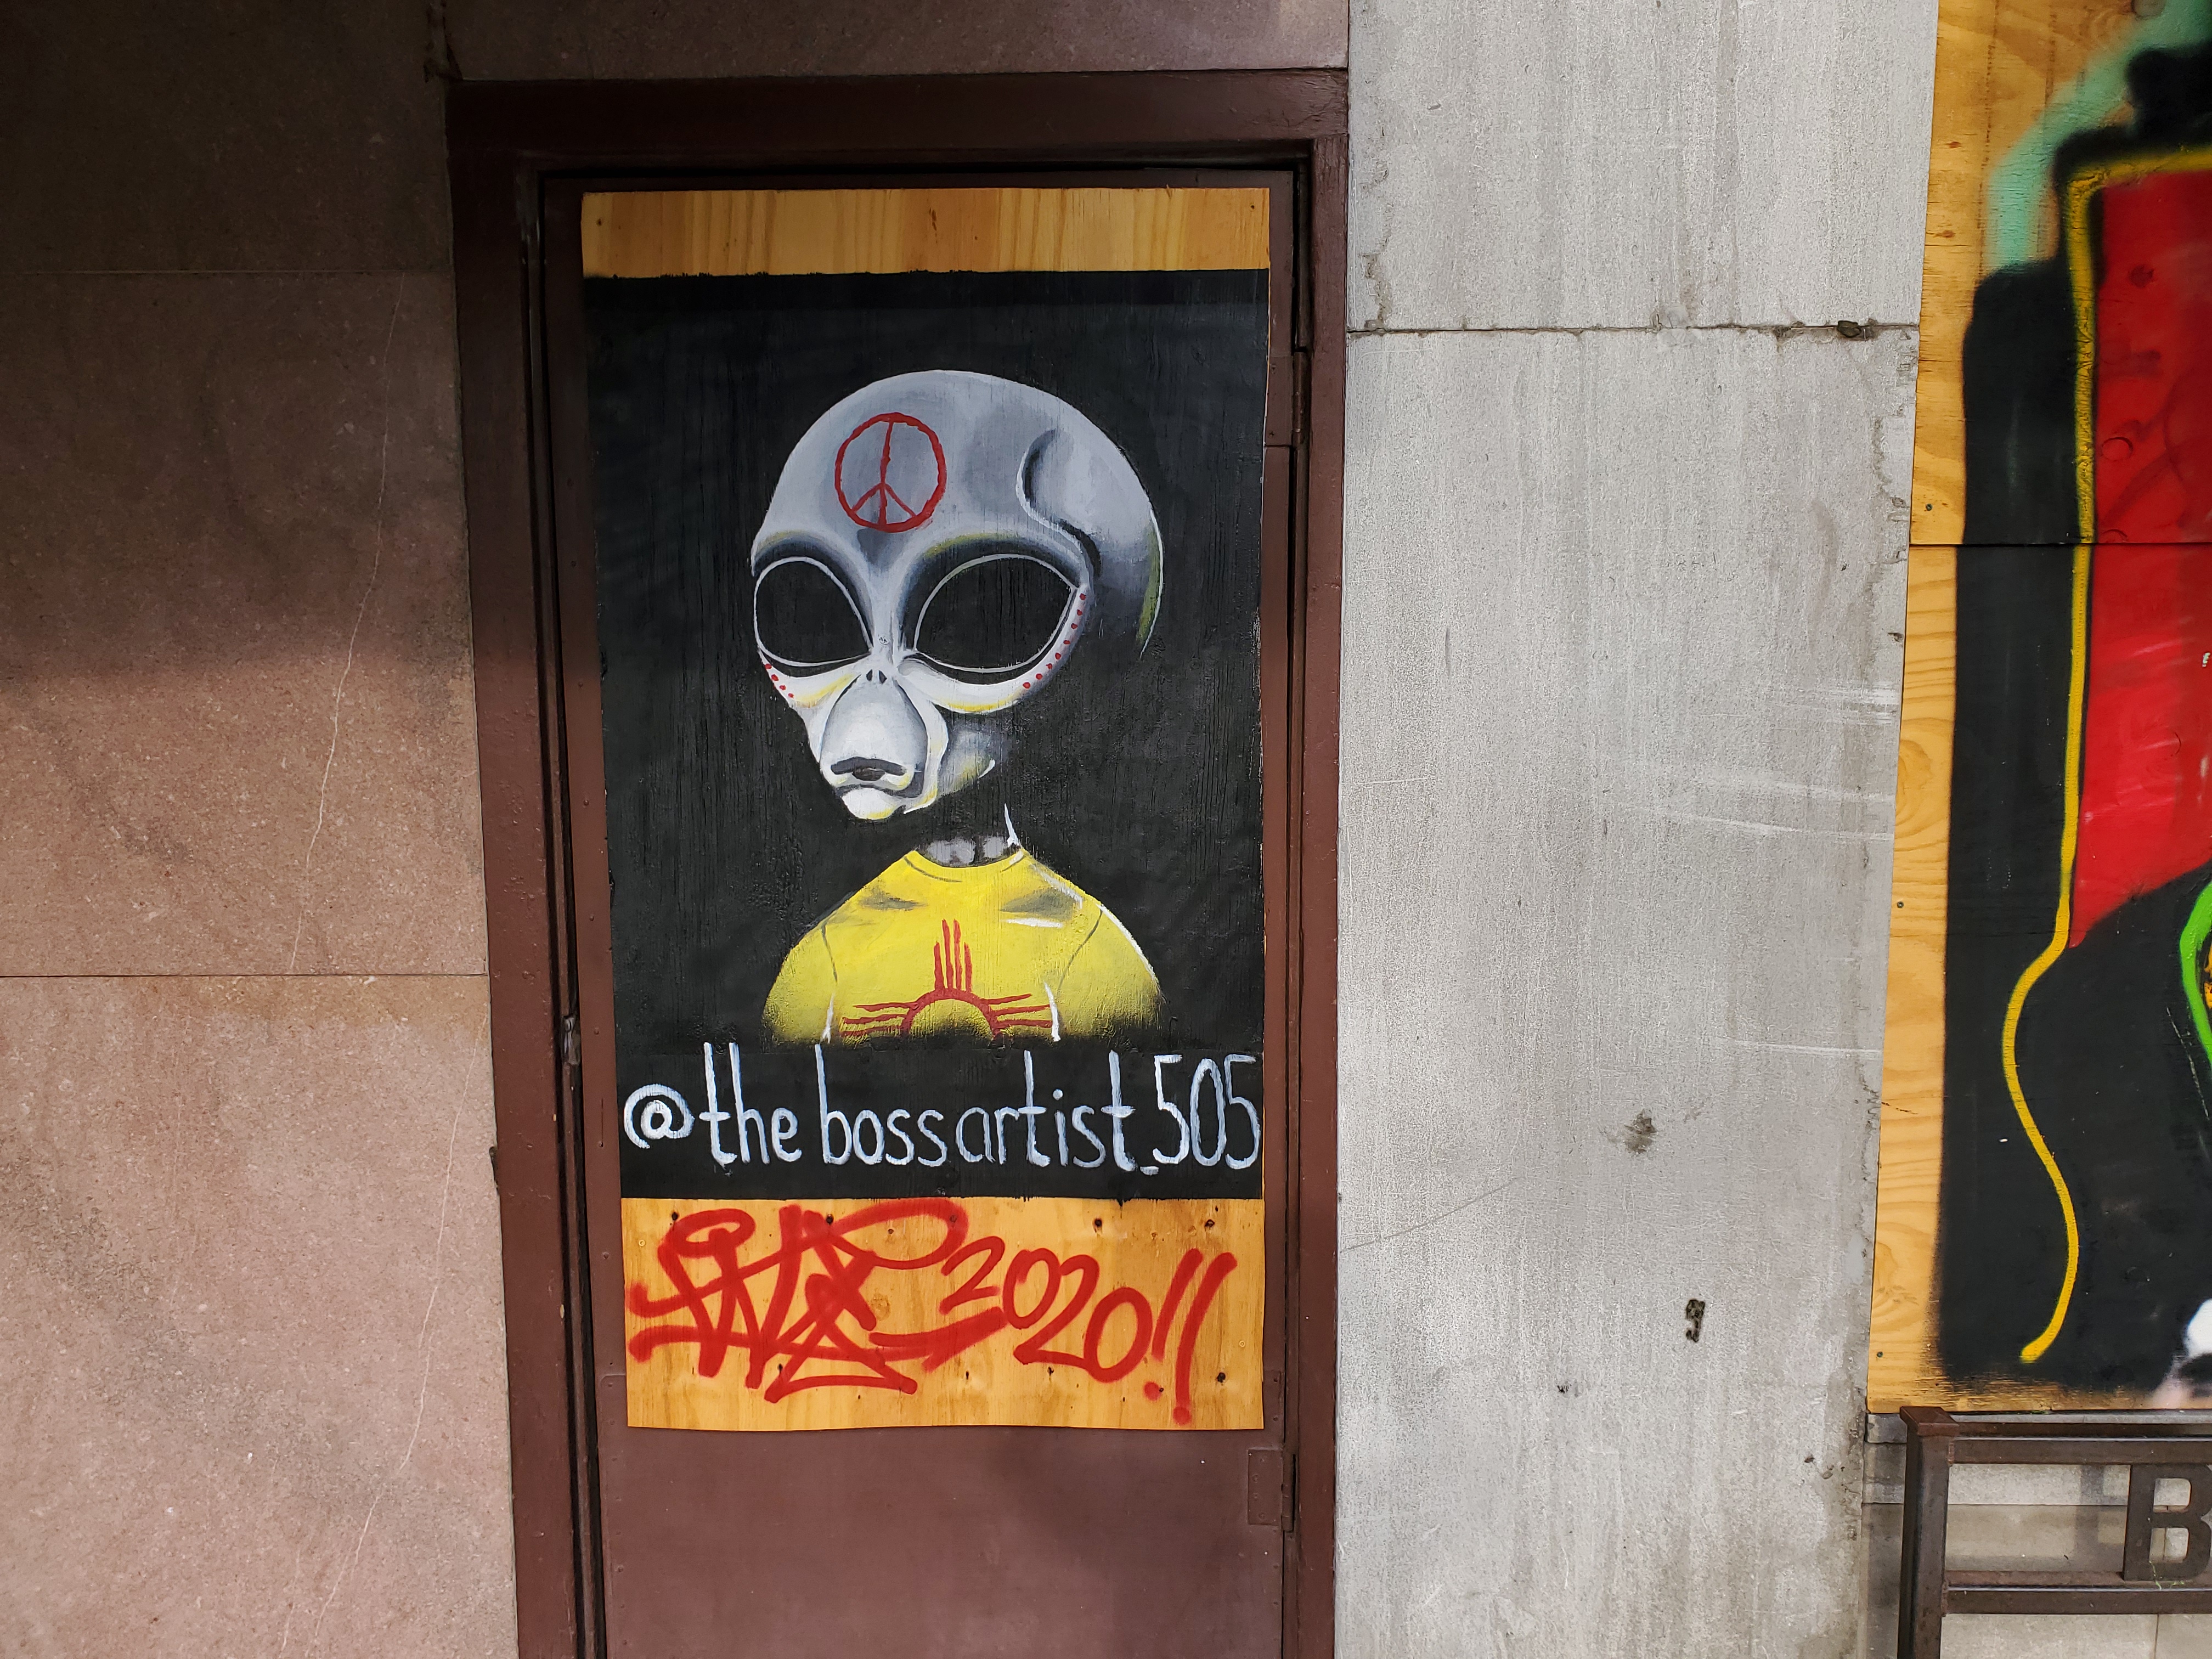 @the boss artist_505
2020!!
B